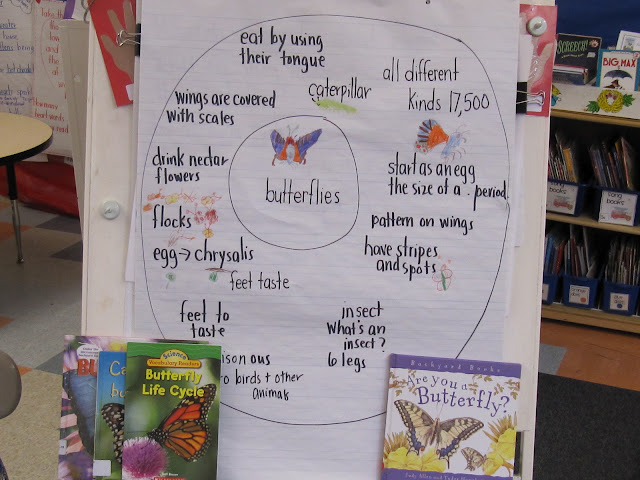 eat by using
their tongue
caterpillar
all different
kinds 17,500
wings are covered
with scales
butterflies
drink nectar
flowers
start as an egg
the size of a . period
flocks
pattern on wings
egg → chrysalis
have stripes
and spots
feet taste
feet to
taste
insect
What's an
insect?
6 legs
birds + other
animals
Science
Vocabulary Readers
Butterfly
Life Cycle
Backyard Books
Are you a
Butterfly?
SCREECH!
BIG MAX
books
books